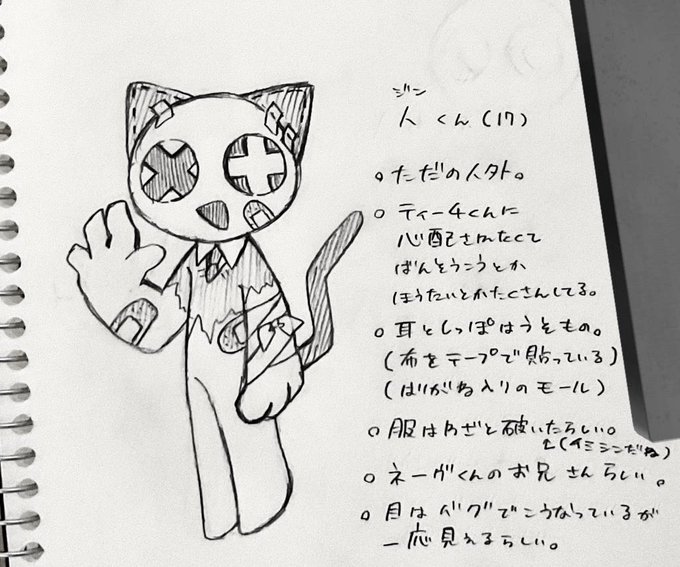 ジン
人くん(17)
○ただの人外。
○ティー4くんに
心配されたくて
ばんそうこうとか
ほうたいとかたくさんしてる。
○耳としっぽはうそもの。
(布をテープで貼っている)
(はりがね入りのモール)
○服はわざと破いたらしい。
↑(イミシンだね)
○ネーヴくんのお兄さんらしい。
○目はバグでこうなっているが
一応見えるらしい。